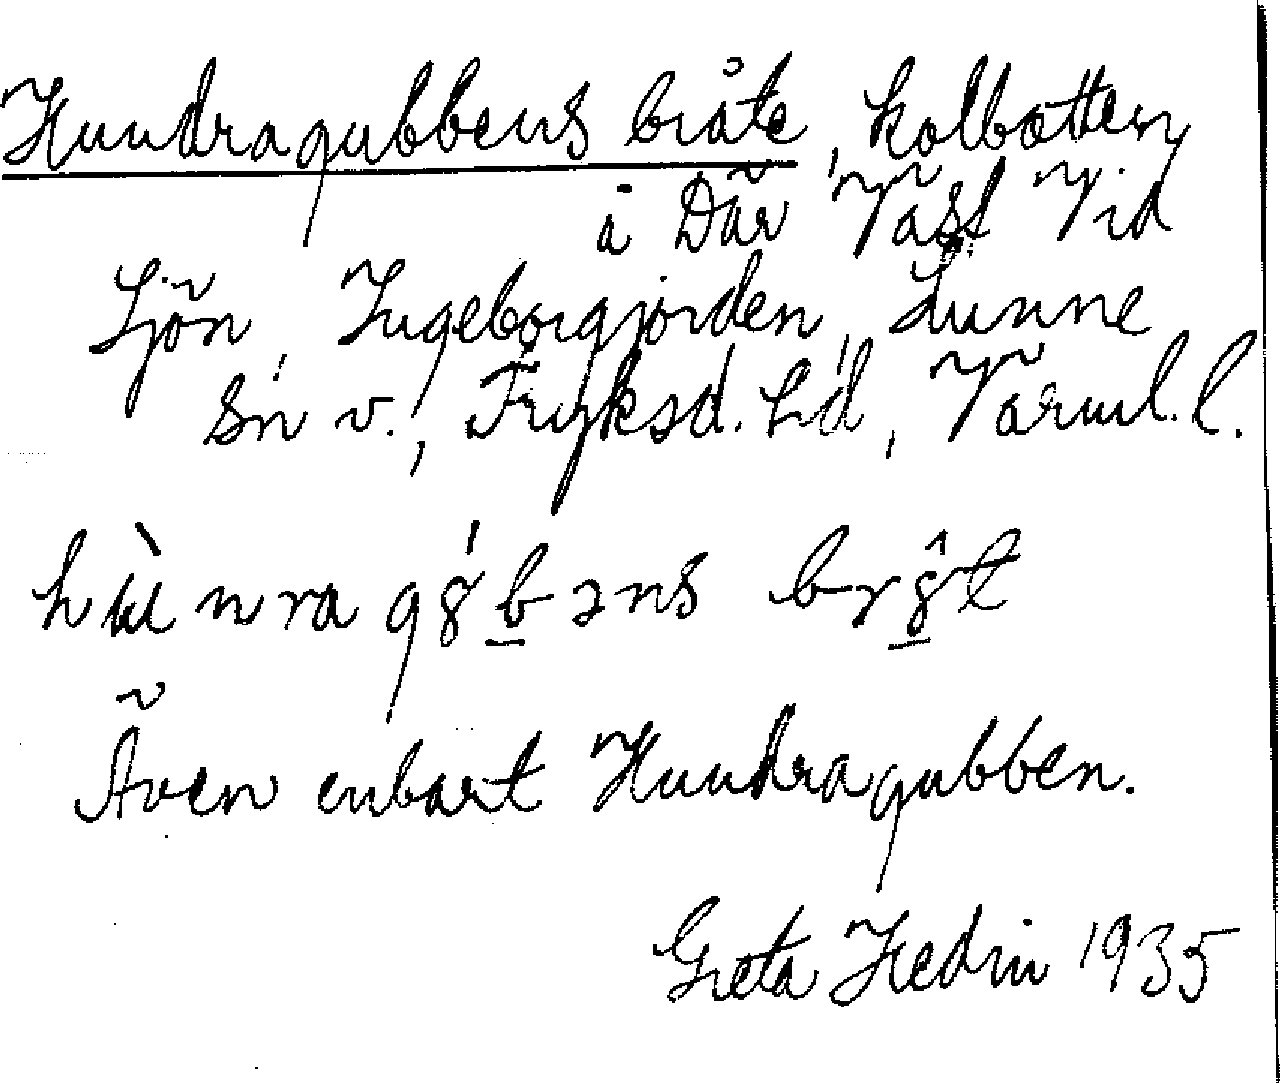 Hundragubbens bråte, kolbotten
å Där Väst Vid
Sjön, Ingeborgjorden, Lunne
sn v., Fryksd. hd, Värml. l.
hùnragóbəns brôt
Även enbart Hundragubben.
Greta Hedin 1935